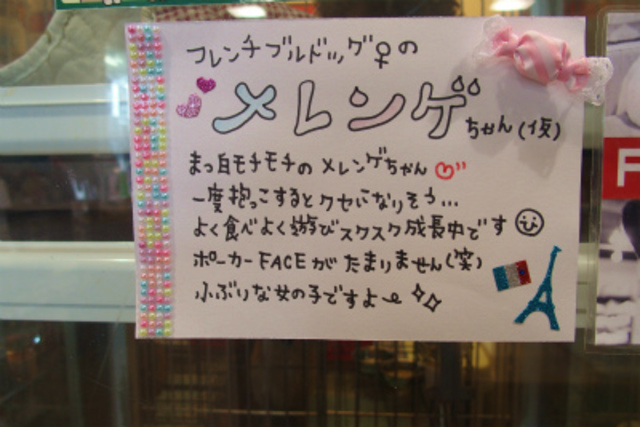 フレンチブルドッグ♀の
メレンゲちゃん(仮)
まっ白モチモチのメレンゲちゃん♡"
一度抱っこするとクセになりそう...
よく食べよく遊びスクスク成長中です☺
ポーカーFACEがたまりません(笑)
小ぶりな女の子ですよ〜
F